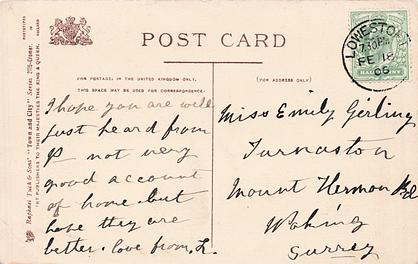 POST CARD
FOR POSTAGE, IN THE UNITED KINGDOM ONLY,
THIS SPACE MAY BE USED FOR CORRESPONDENCE.
(FOR ADDRESS ONLY)
Raphael Tuck & Sons' "Town and City" Series
ART PUBLISHERS TO THEIR MAJESTIES THE KING & QUEEN.
LOWESTOFT
7.30PM
FE 18
HALFPENNY
I hope you are well
just heard from
P not very
good account
of home but
hope they are
better. love from, L.
Miss Emily Girling
Turnaston
Mount Hermon Rd
Woking
Surrey